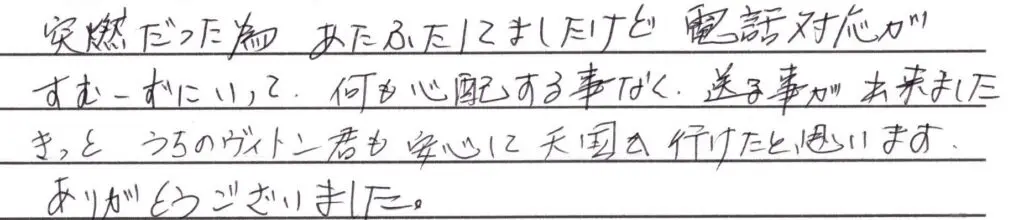 突燃だった為 あたふたしてましたけど 電話対応が
すむーずにいって、何も心配する事なく、送る事が出来ました
きっと うちのヴィトン君も安心して天国へ行けたと思います。
ありがとうございました。